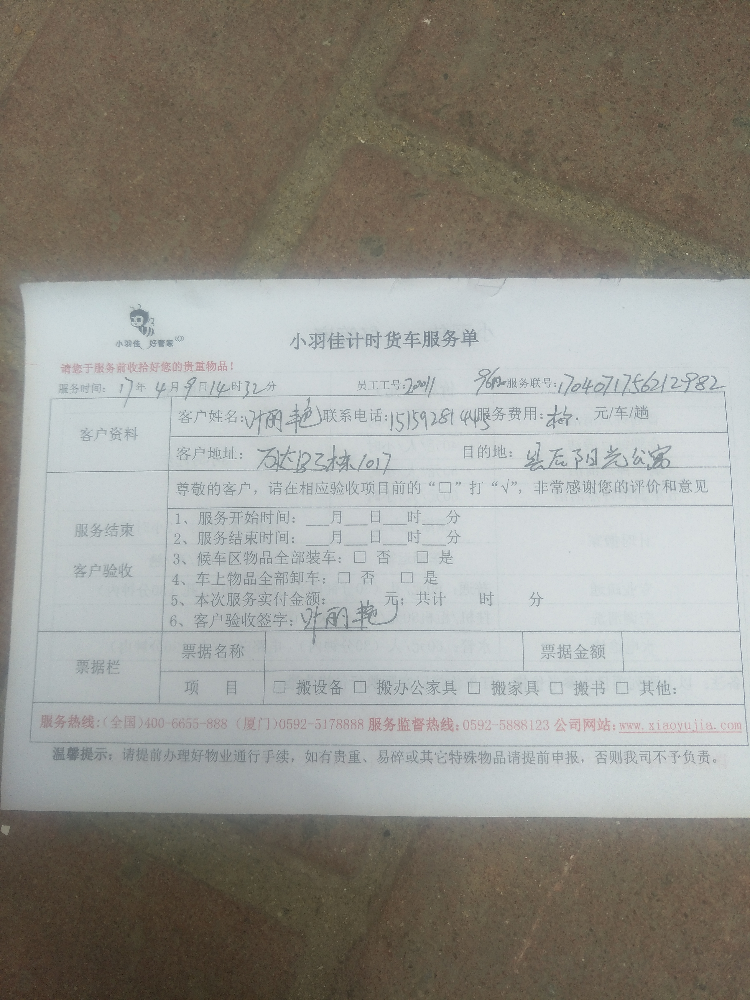 小羽佳 好管家
小羽佳计时货车服务单
请您于服务前收拾好您的贵重物品！
服务时间：17年4月9日14时32分 员工工号：22011 服务联号：1704071756212982
客户资料
客户姓名：叶丽艳 联系电话：15159281445 服务费用： 元/车/趟
客户地址：万达B3栋1017 目的地：县后阳光公寓
尊敬的客户，请在相应验收项目前的“□”打“√”，非常感谢您的评价和意见
服务结束
客户验收
1、服务开始时间：___月___日___时___分
2、服务结束时间：___月___日___时___分
3、候车区物品全部装车：□ 否 □ 是
4、车上物品全部卸车：□ 否 □ 是
5、本次服务实付金额： 元；共计 时 分
6、客户验收签字：叶丽艳
票据栏
票据名称 票据金额
项 目 □ 搬设备 □ 搬办公家具 □ 搬家具 □ 搬书 □ 其他：
服务热线：(全国)400-6655-888 (厦门)0592-5178888 服务监督热线：0592-5888123 公司网站：www.xiaoyujia.com
温馨提示：请提前办理好物业通行手续，如有贵重、易碎或其它特殊物品请提前申报，否则我司不予负责。